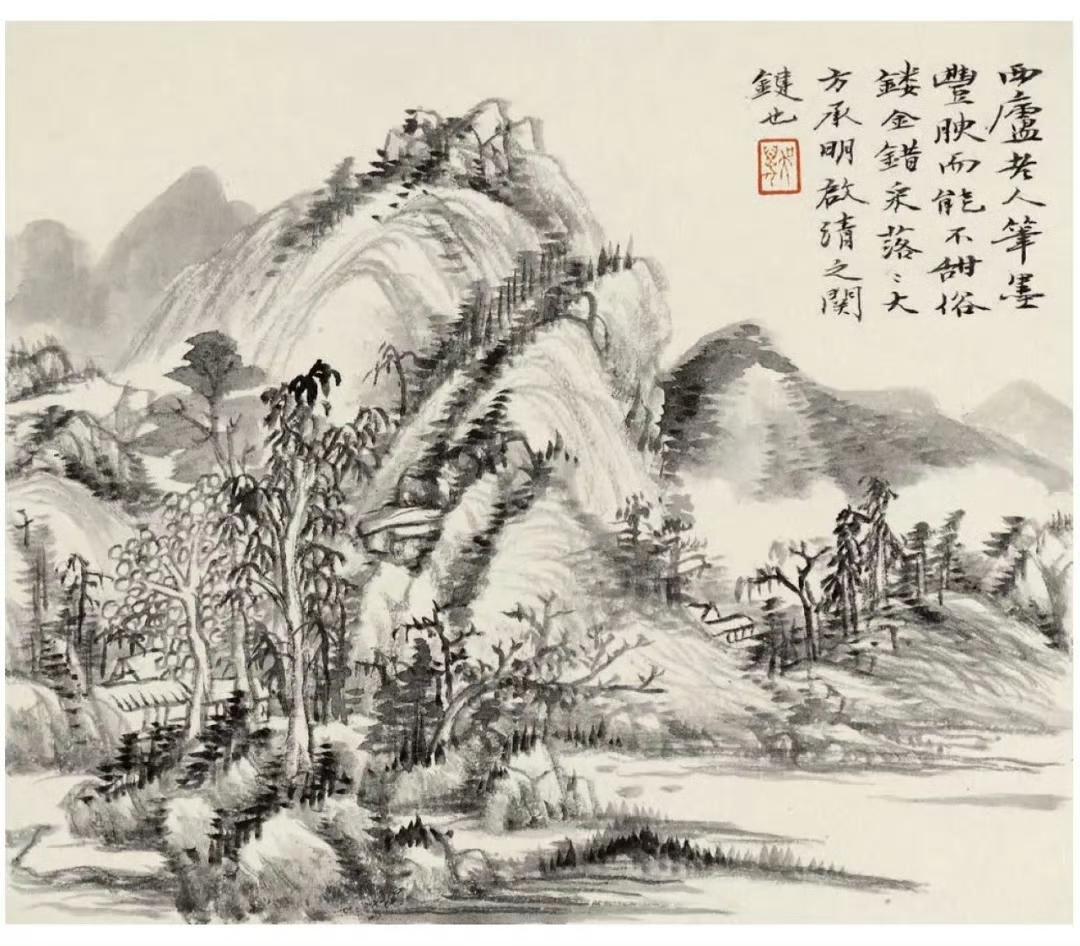 西廬老人筆墨
豐腴而能不甜俗
鏤金錯采落〻大
方承明啟清之關
鍵也